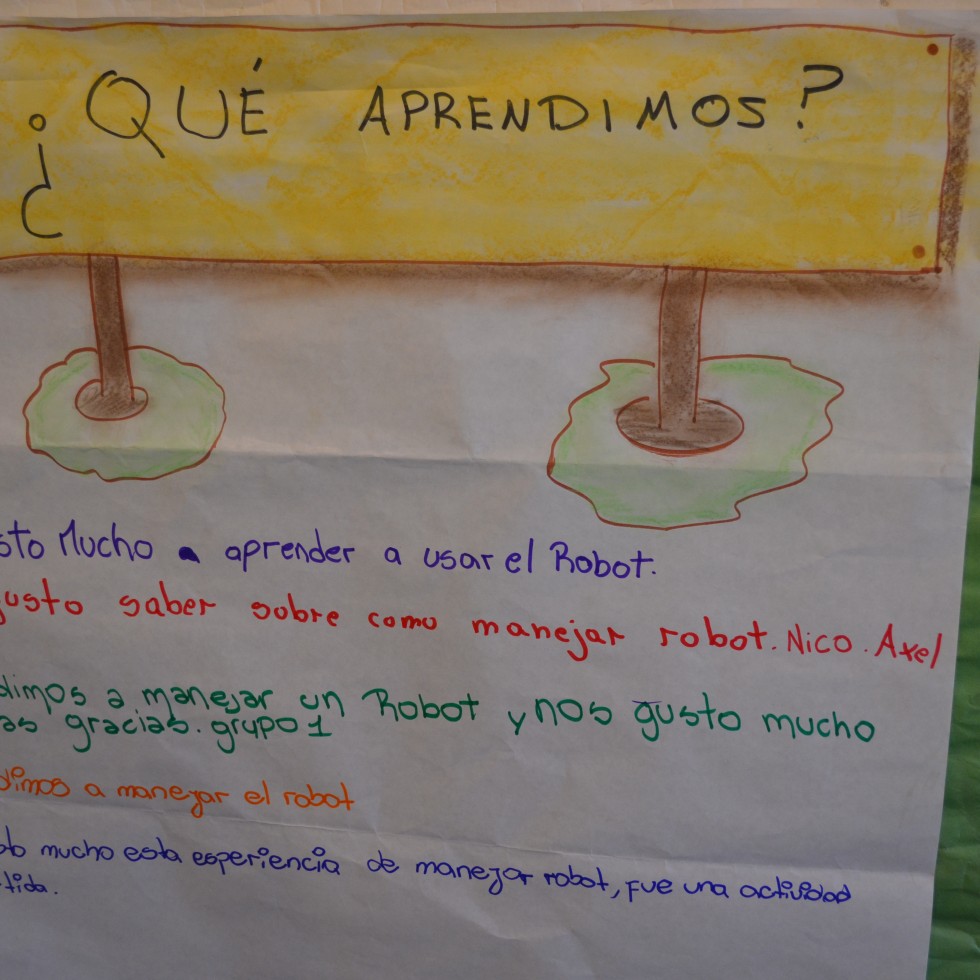 ¿QUÉ APRENDIMOS?
sto Mucho a aprender a usar el Robot.
gusto saber sobre como manejar robot. Nico. Axel
dimos a manejar un Robot y nos gusto mucho
as gracias. grupo 1
dimos a manejar el robot
do mucho esta esperiencia de manejar robot, fue una actividad
tida.